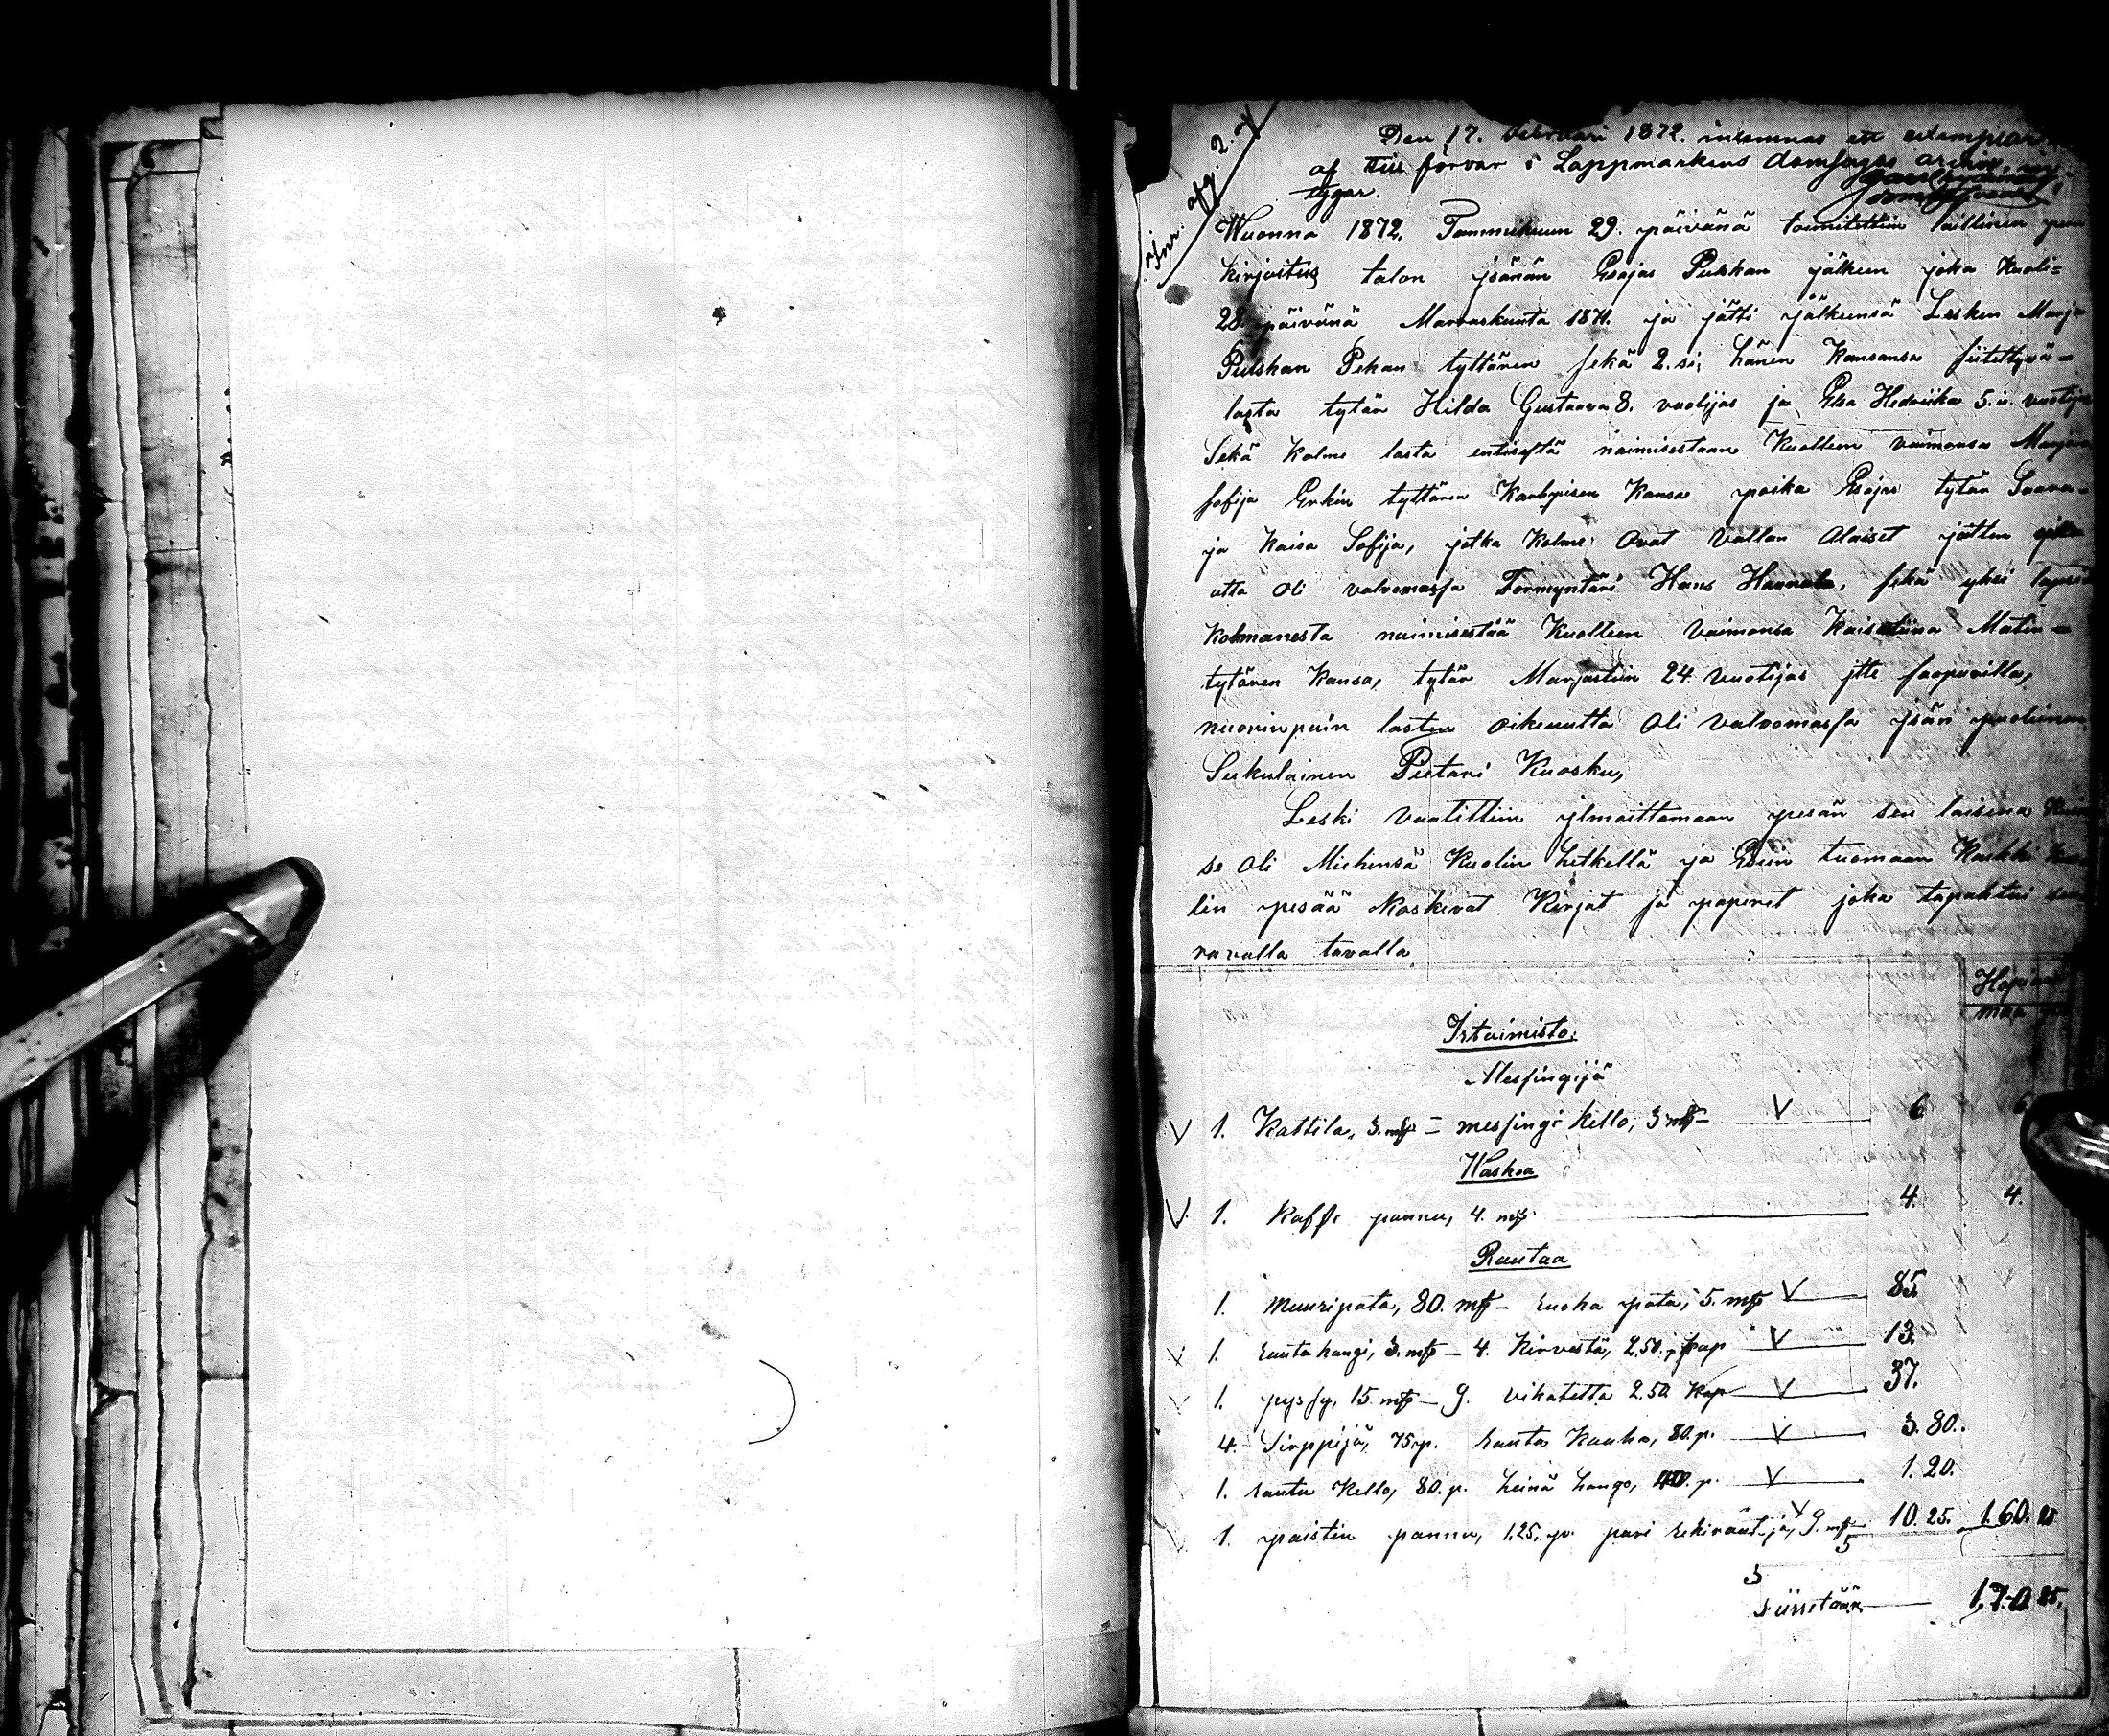 Inv. afg. 2.
Den 17. Februari 1872. inlemnas ett exemplar
af till förvar i Lappmarkens domsagas archiv,
tygar.
Wuonna 1872, Tammikuun 29. päivänä toimitettiin laillinen
kirjoitus talon jsänän Esajas Pulskan jälkeen joka kuoli=
28. päivänä Marraskuuta 1871. ja jätti jälkeensä Lesken Marja
Pulskan Pekan tyttären sekä 2.si, hänen Kansansa siitettyä-
lasta tytär Hilda Gustaava 8. vuotijas ja Elsa Hedvika 5.
Sekä Kolme lasta entisestä naimisestaan Kuolleen vaimonsa
Sofija Erkin tyttären Kansa poika Esajas tytär Saara-
ja Kaisa Sofija, jotka Kolme Ovat Vallan Alaiset
utta oli valvomassa Formyntäri Hans Hannola, sekä yksi
Kolmanesta naimisestaa Kuolleen Vaimonsa Kaisatiina Matin-
tytären Kansa, tytär Marjastiin 24. Vuotijas jtte saapuvilla,
nuorinpain lasten oikeuutta oli Valvomassa jsän puolinen
Sukulainen Pietari Kuosku,
Leski Vaatittiin jlmoittamaan pesän sen laisena
se oli Miehensä Kuolin hetkellä ja Esiin tuomaan Kaikki
lin pesää Koskevat Kirjat ja paperit joka tapahtui
ravalla tavalla
Irtaimisto.
Messingijä
1. Kattila, 3. mk - messingi Kello, 3 mk - 6
Waskea
1. Kaffe pannu, 4. mk 4. 4.
Rautaa
1. muuripata, 80. mk - ruoka pata, 5. mk 85
1. rautakangi, 3. mk - 4. Kirvestä, 2.50. kap 13.
1. pyssy, 15 mk - 9. vikatetta 2.50 Kap 37.
4. Sirppijä, 75 p. rauta Kauha, 80. p. 3.80.
1. rauta Kello, 80. p. heinä hango, 40. p. 1.20.
1. paistin pannu, 1.25. p. pari rekirautija, 9. mk 10.25. 160. 25
Siirretään 170 25.